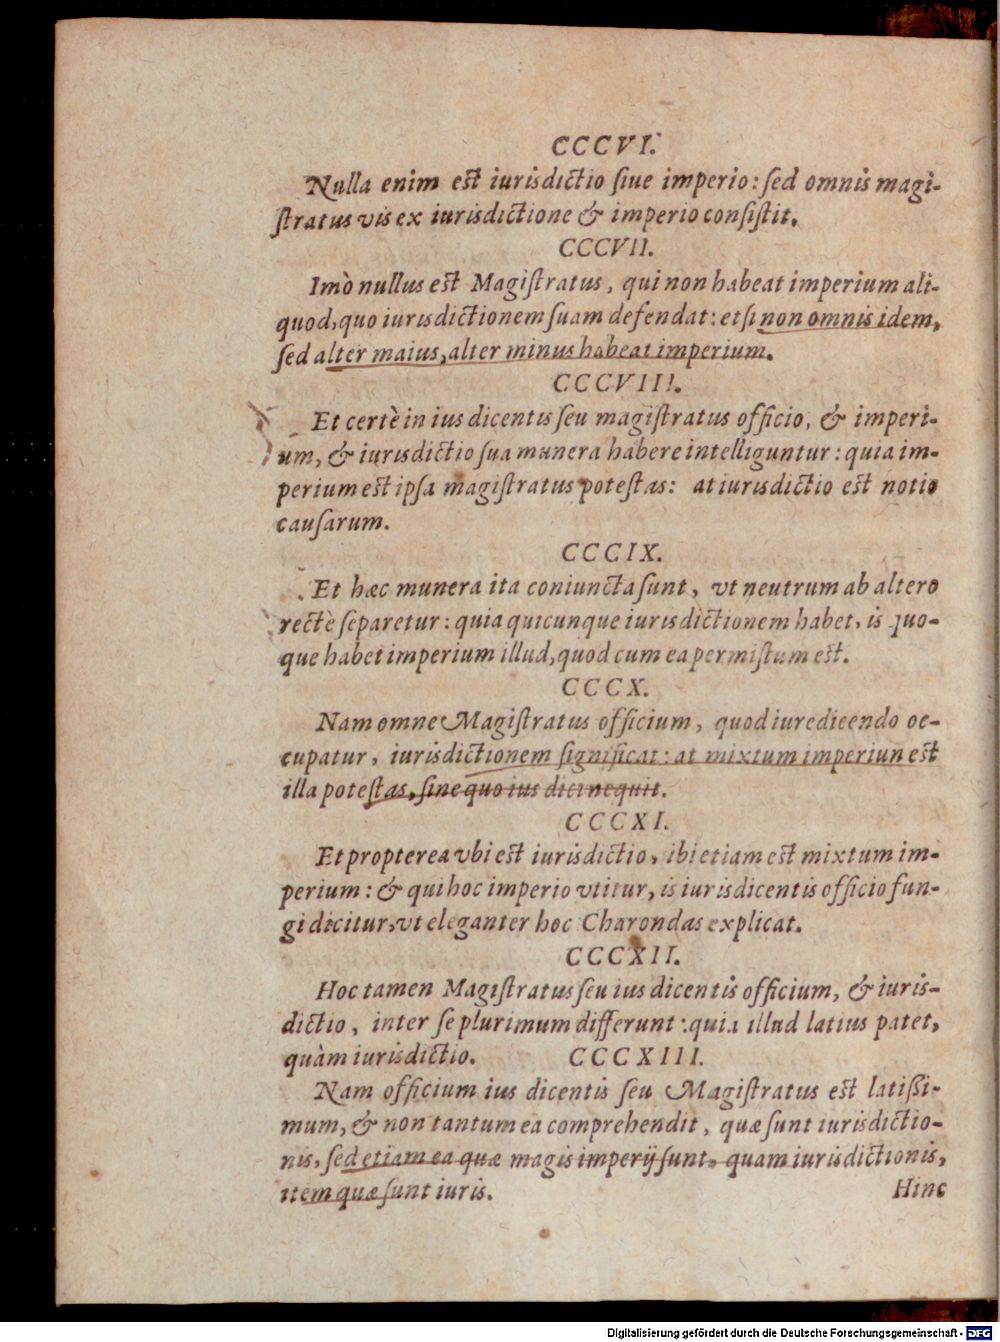 CCCVI.
Nulla enim est iurisdictio siue imperio: sed omnis magi-
stratus vis ex iurisdictione & imperio consistit.
CCCVII.
Imò nullus est Magistratus, qui non habeat imperium ali-
quod, quo iurisdictionem suam defendat: etsi non omnis idem,
sed alter maius, alter minus habeat imperium.
CCCVIII.
Et certè in ius dicentis seu magistratus officio, & imperi-
um, & iurisdictio sua munera habere intelliguntur: quia im-
perium est ipsa magistratus potestas: at iurisdictio est notio
causarum.
CCCIX.
Et hæc munera ita coniuncta sunt, vt neutrum ab altero
rectè separetur: quia quicunque iurisdictionem habet, is quo-
que habet imperium illud, quod cum ea permistum est.
CCCX.
Nam omne Magistratus officium, quod iuredicendo oc-
cupatur, iurisdictionem significat: at mixtum imperiun est
illa potestas, sine quo ius dici nequit.
CCCXI.
Et propterea vbi est iurisdictio, ibi etiam est mixtum im-
perium: & qui hoc imperio vtitur, is iurisdicentis officio fun-
gi dicitur, vt eleganter hoc Charondas explicat.
CCCXII.
Hoc tamen Magistratus seu ius dicentis officium, & iuris-
dictio, inter se plurimum differunt: quia illud latius patet,
quàm iurisdictio. CCCXIII.
Nam officium ius dicentis seu Magistratus est latißi-
mum, & non tantum ea comprehendit, quæ sunt iurisdictio-
nis, sed etiam ea quæ magis imperij sunt, quam iurisdictionis,
item quæ sunt iuris. Hinc
Digitalisierung gefördert durch die Deutsche Forschungsgemeinschaft - DFG